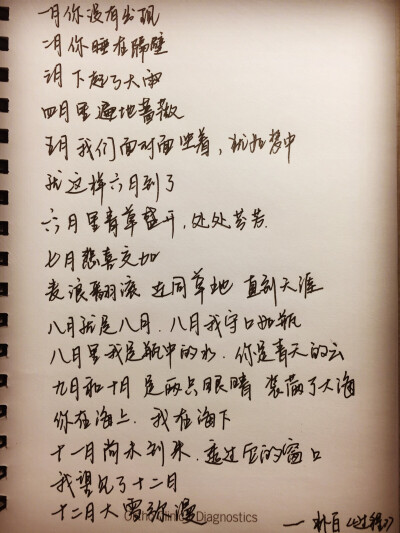 一月你没有出现
二月你睡在隔壁
三月下起了大雨
四月里遍地蔷薇
五月我们面对面坐着，犹如梦中
就这样六月到了
六月里青草盛开，处处芬芳.
七月悲喜交加
麦浪翻滚 连同草地 直到天涯
八月就是八月.八月我守口如瓶
八月里我是瓶中的水.你是青天的云
九月和十月 是两只眼睛 装满了大海
你在海上.我在海下
十一月尚未到来.透过它的窗口
我望见了十二月
十二月大雪弥漫
Diagnostics
——朴白《过程》